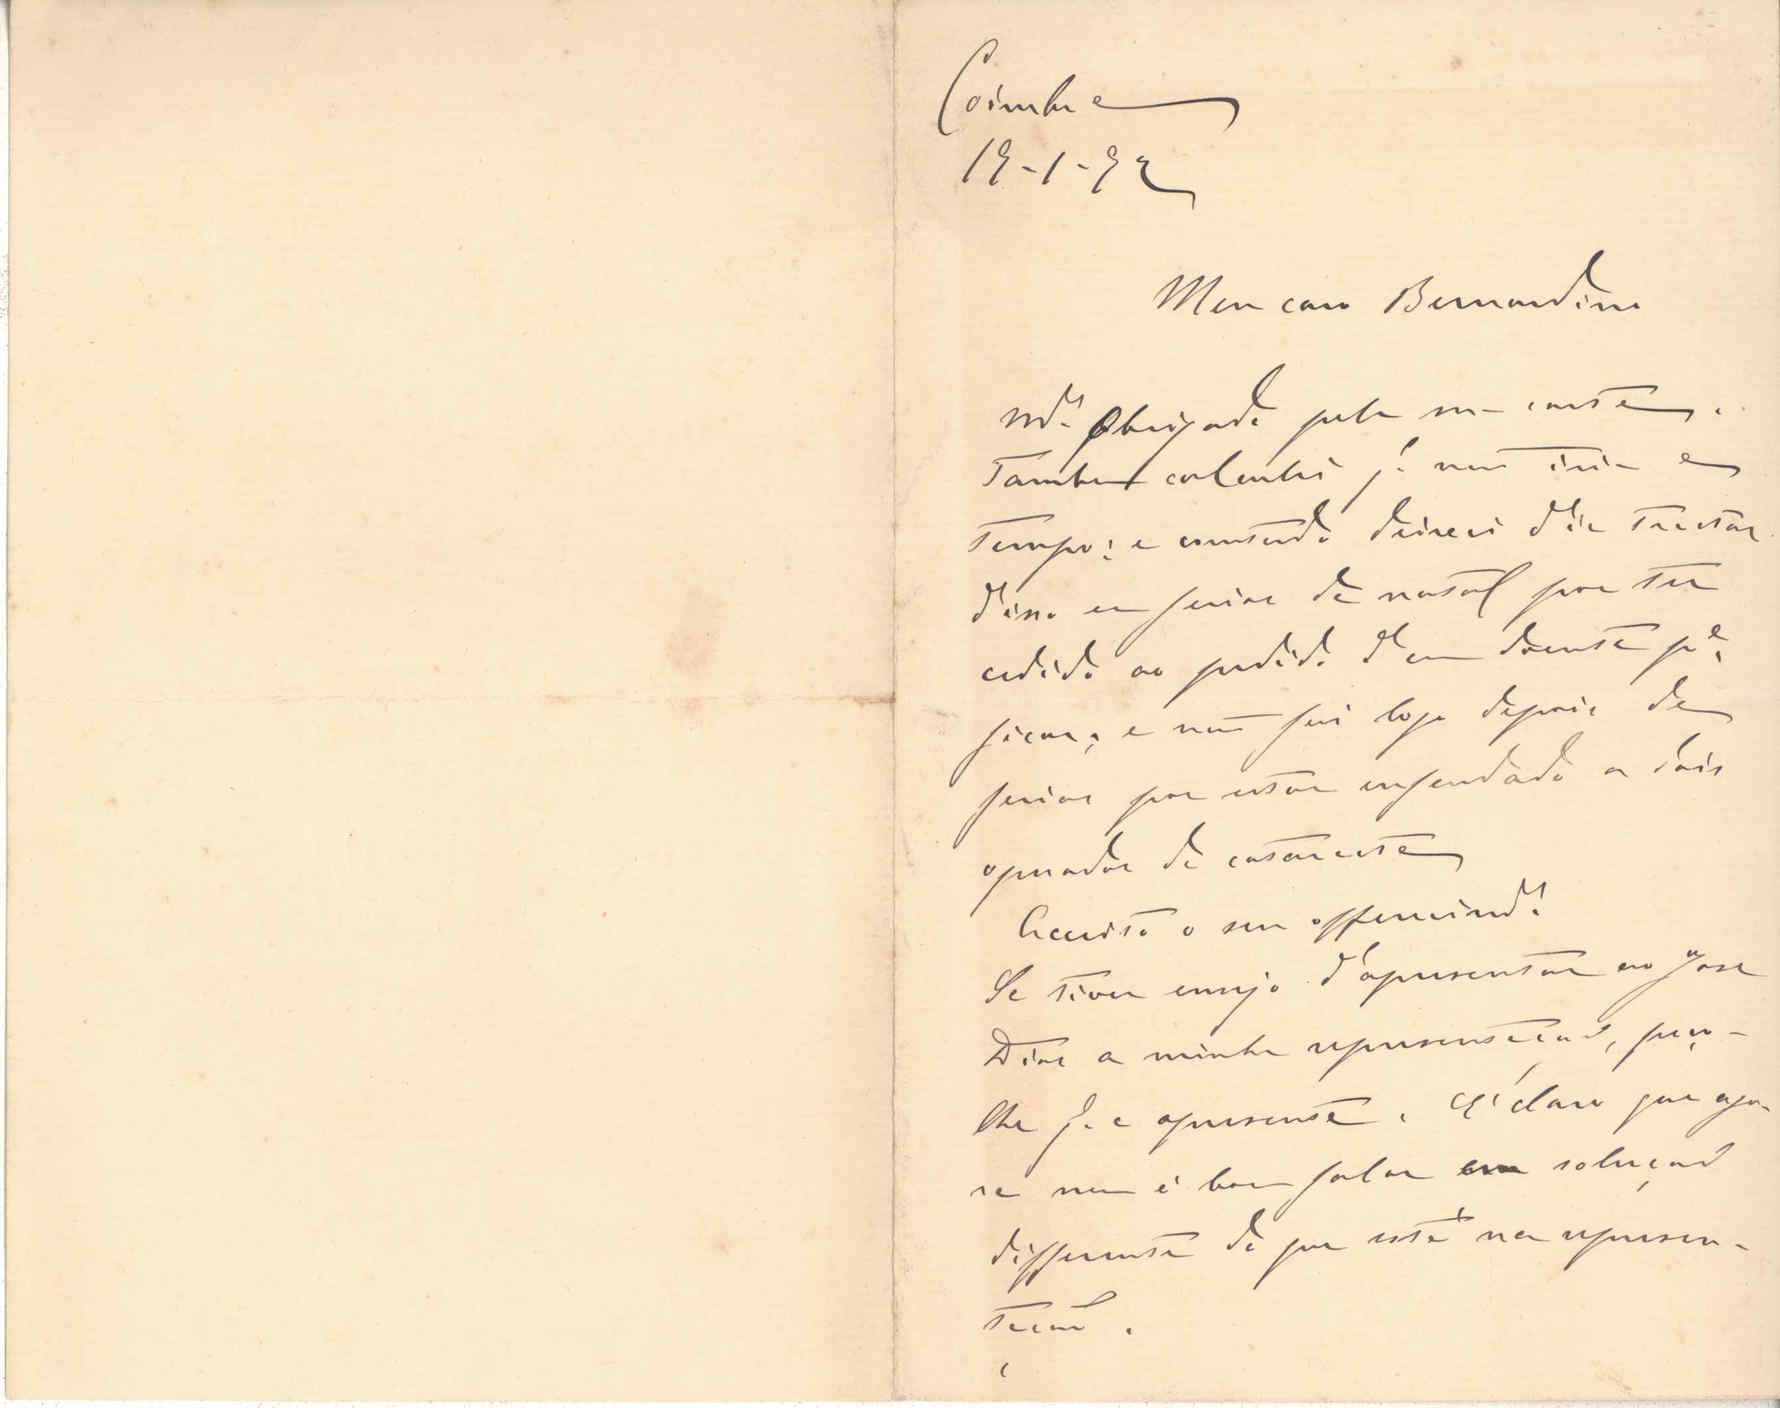 Coimbra
19-1-92
Meu caro Bernardino
Md.º Obrigado pela sua carta.
Tambem calculei já não iria a
tempo; e comtudo deixei d'ir tractar
d'isso em ferias de natal por ter
cedido ao pedido d'um doente p.ª
ficar; e não fui logo depois de
ferias por estar enfeudado a dois
operados de catarata
Acceito o seu offerecimd.º
Se tiver ensejo d'apresentar ao Jose
Dias a minha representação, peço-
lhe q. a apresente. É claro que ago-
ra nem é bom falar em solução
differente da que está na represen-
tação.